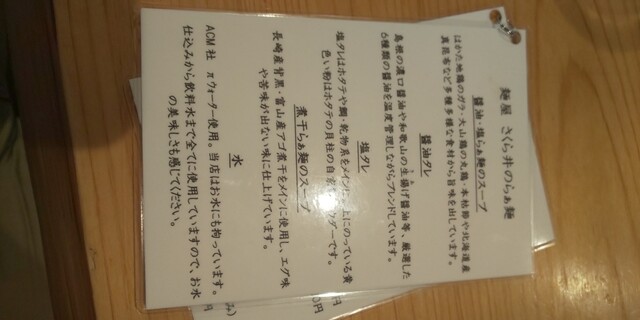 麺屋 さくら井のらぁ麺
醤油・塩らぁ麺のスープ
はかた地鶏のガラ・大山鶏の丸鶏・本枯節や北海道産
真昆布など多種多様な食材から旨味を出しています。
醤油ダレ
島根の濃口醤油や和歌山の生揚げ醤油等、厳選した
6種類の醤油を温度管理しながらブレンドしています。
塩ダレ
塩ダレはホタテや鯛・乾物系をメインに 上にのっている黄
色い粉はホタテの貝柱の自家 パウダーです。
煮干らぁ麺のスープ
長崎産背黒・富山産アゴ煮干をメインに使用し、エグ味
や苦味が出ない味に仕上げています。
水
ACM社 πウォーター使用。当店はお水にも拘っています。
仕込みから飲料水まで全てに使用していますので、お水
の美味しさも感じてください。
円
0円
み)
円